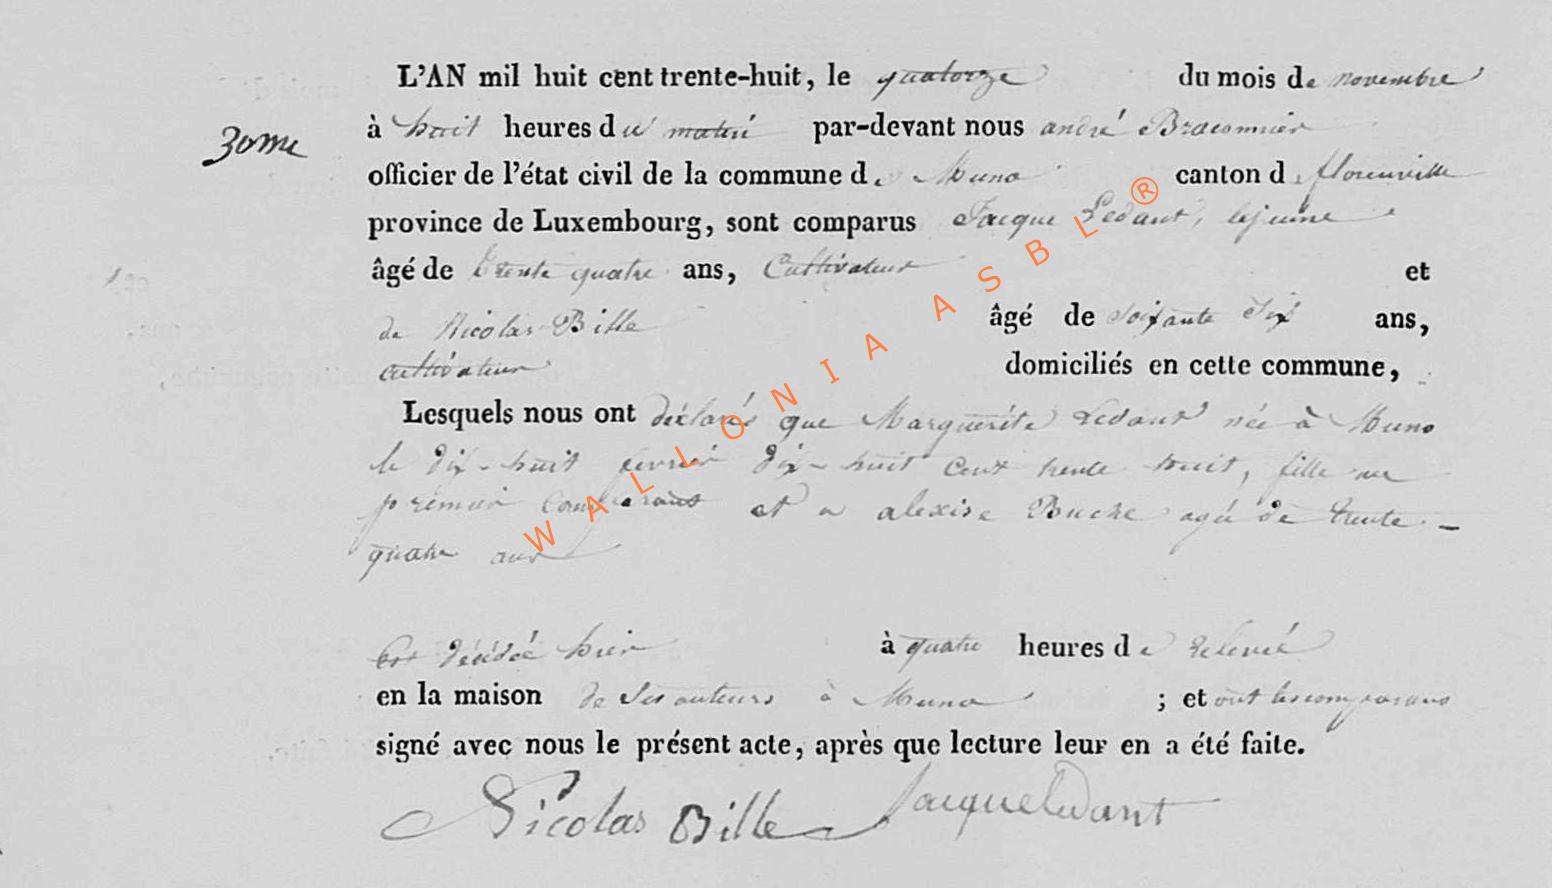 L'AN mil huit cent trente-huit, le quatorze du mois de novembre
30me
à huit heures du matin par-devant nous andré Braconnier
officier de l'état civil de la commune de Muno canton de florenville
province de Luxembourg, sont comparus Jacque Ledant, lejeune
âgé de trente quatre ans, Cultivateur et
de Nicolas Bille âgé de soixante six ans,
cultivateur domiciliés en cette commune,
Lesquels nous ont déclarés que Marguerite Ledant née à Muno
le dix-huit fevrier dix-huit cent trente huit, fille du
premier comparant et d alexise Buche agée de trente -
quatre ans
Est décédée hier à quatre heures de relevée
en la maison de ses auteurs à Muno ; et ont les comparans
signé avec nous le présent acte, après que lecture leur en a été faite.
Nicolas Bille Jacque Ledant
WALLONIA ASBL ®